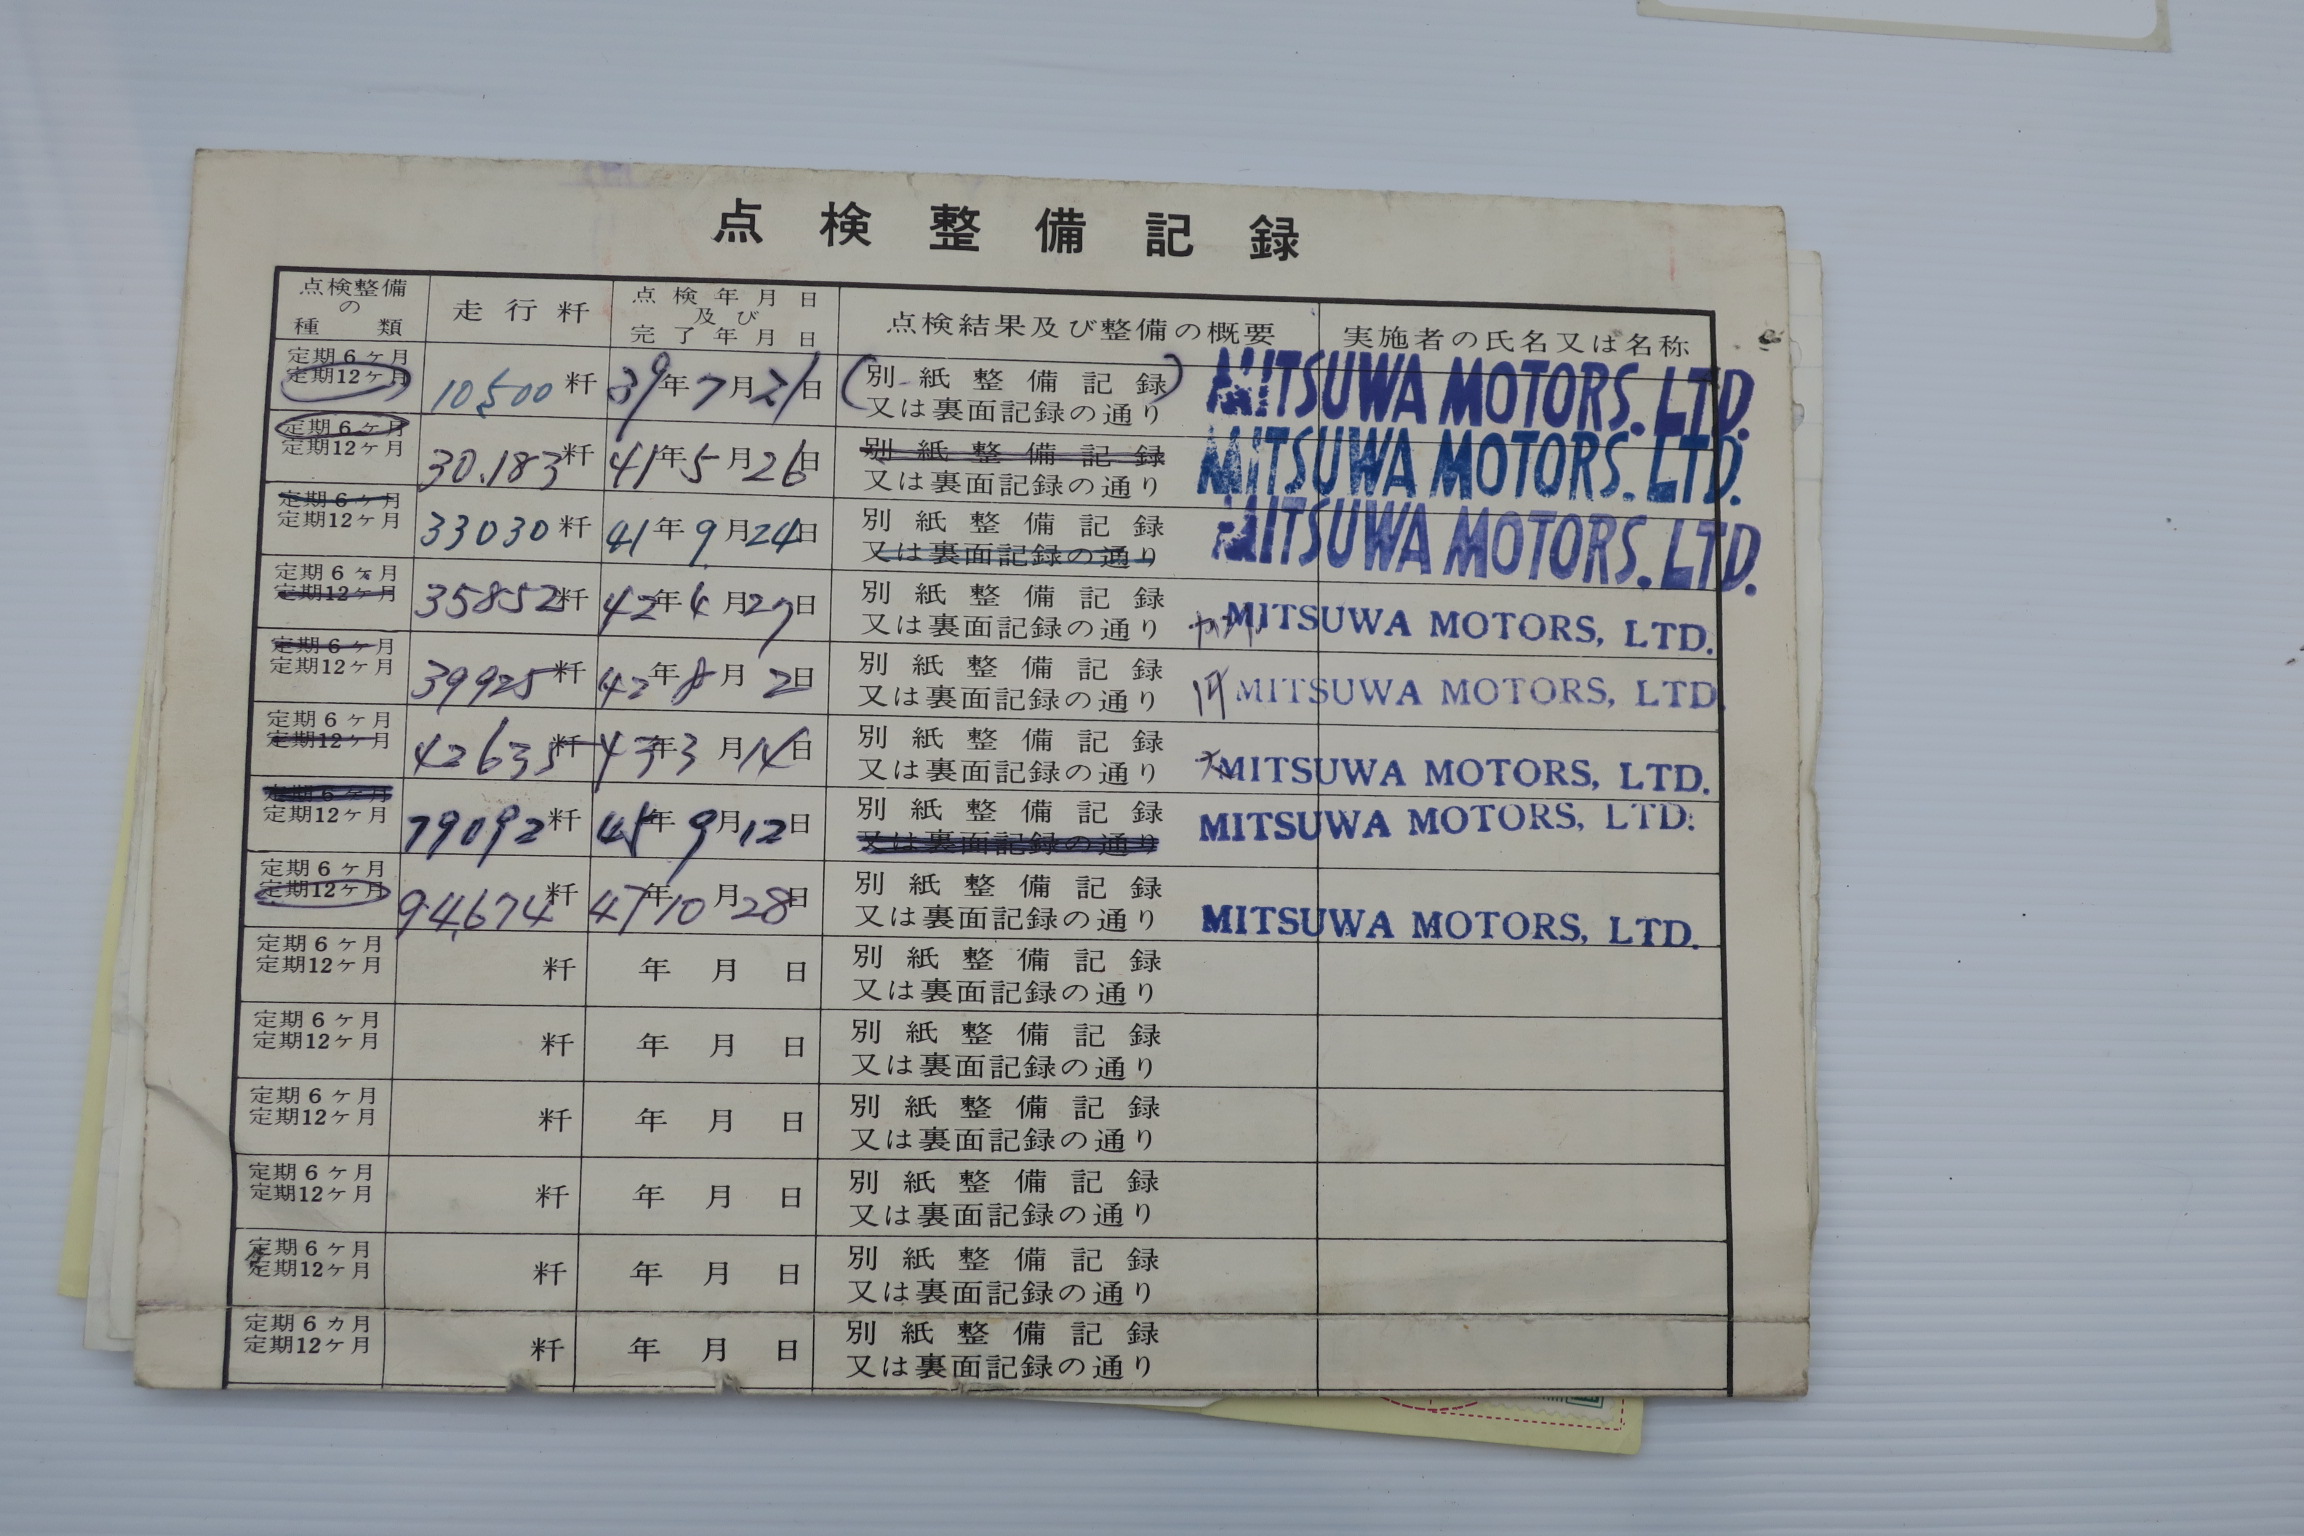 点検整備記録
点検整備
の
種類
走行粁
点検年月日
及び
完了年月日
点検結果及び整備の概要
実施者の氏名又は名称
定期6ヶ月
定期12ヶ月
10,500粁
39年7月21日
(別紙整備記録)
又は裏面記録の通り
MITSUWA MOTORS. LTD.
定期6ヶ月
定期12ヶ月
30.183粁
41年5月26日
別紙整備記録
又は裏面記録の通り
MITSUWA MOTORS. LTD.
定期6ヶ月
定期12ヶ月
33030粁
41年9月24日
別紙整備記録
又は裏面記録の通り
MITSUWA MOTORS. LTD.
定期6ヶ月
定期12ヶ月
35852粁
42年4月27日
別紙整備記録
又は裏面記録の通り
MITSUWA MOTORS, LTD.
定期6ヶ月
定期12ヶ月
39925粁
42年8月2日
別紙整備記録
又は裏面記録の通り
MITSUWA MOTORS, LTD.
定期6ヶ月
定期12ヶ月
42635粁
43年3月14日
別紙整備記録
又は裏面記録の通り
MITSUWA MOTORS, LTD.
定期6ヶ月
定期12ヶ月
79092粁
45年9月12日
別紙整備記録
又は裏面記録の通り
MITSUWA MOTORS, LTD.
定期6ヶ月
定期12ヶ月
94,674粁
47年10月28日
別紙整備記録
又は裏面記録の通り
MITSUWA MOTORS, LTD.
定期6ヶ月
定期12ヶ月
粁
年月日
別紙整備記録
又は裏面記録の通り
定期6ヶ月
定期12ヶ月
粁
年月日
別紙整備記録
又は裏面記録の通り
定期6ヶ月
定期12ヶ月
粁
年月日
別紙整備記録
又は裏面記録の通り
定期6ヶ月
定期12ヶ月
粁
年月日
別紙整備記録
又は裏面記録の通り
定期6ヶ月
定期12ヶ月
粁
年月日
別紙整備記録
又は裏面記録の通り
定期6カ月
定期12ヶ月
粁
年月日
別紙整備記録
又は裏面記録の通り